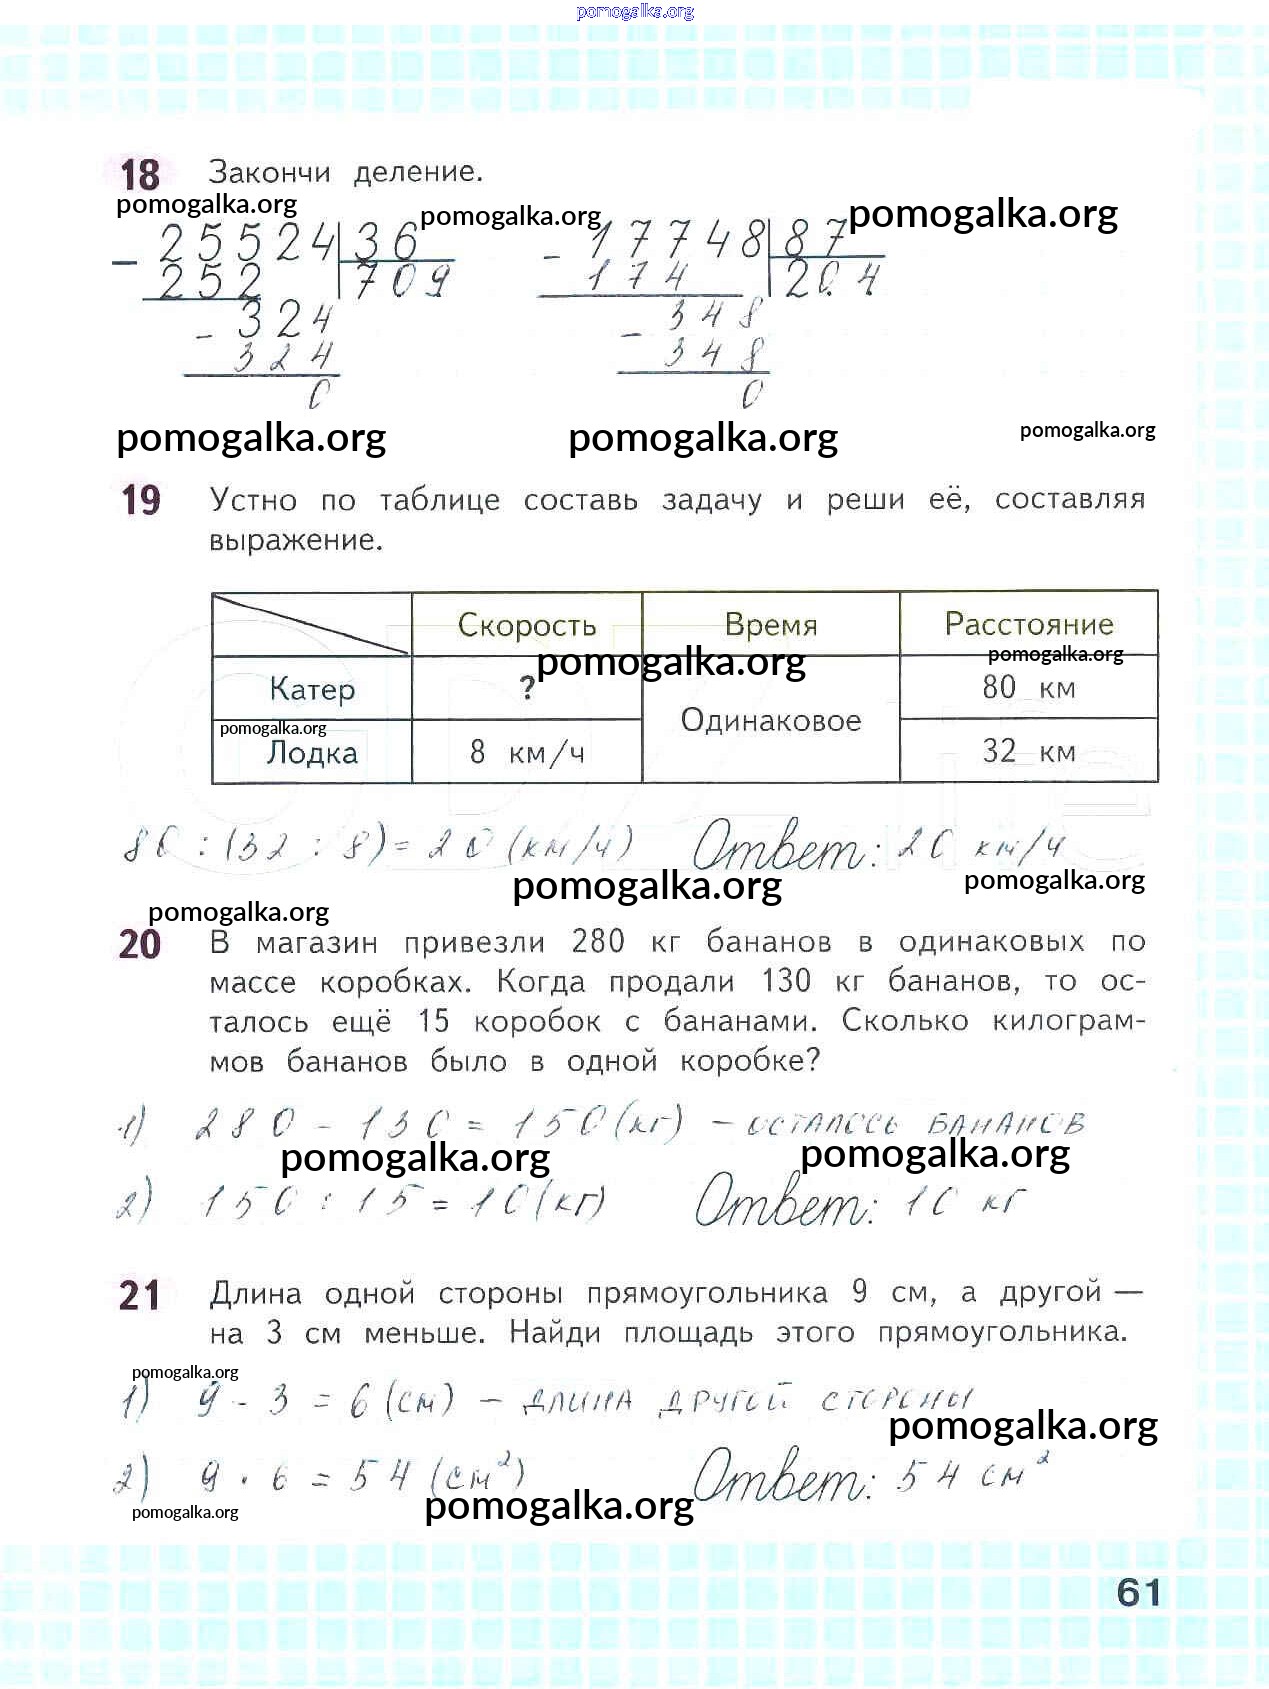 pomogalka.org
18 Закончи деление.
pomogalka.org pomogalka.org pomogalka.org
- 25524 36 - 17748 87
252 709 174 204
- 324 - 348
324 348
0 0
pomogalka.org pomogalka.org pomogalka.org
19 Устно по таблице составь задачу и реши её, составляя
выражение.
Скорость Время Расстояние
pomogalka.org pomogalka.org
Катер ? Одинаковое 80 км
pomogalka.org
Лодка 8 км/ч 32 км
80 : (32 : 8) = 20 (км/ч) Ответ: 20 км/ч
pomogalka.org pomogalka.org
pomogalka.org
20 В магазин привезли 280 кг бананов в одинаковых по
массе коробках. Когда продали 130 кг бананов, то ос-
талось ещё 15 коробок с бананами. Сколько килограм-
мов бананов было в одной коробке?
1) 280 - 130 = 150 (кг) - осталось бананов
pomogalka.org pomogalka.org
2) 150 : 15 = 10 (кг) Ответ: 10 кг
21 Длина одной стороны прямоугольника 9 см, а другой —
на 3 см меньше. Найди площадь этого прямоугольника.
pomogalka.org
1) 9 - 3 = 6 (см) - длина другой стороны
pomogalka.org
2) 9 · 6 = 54 (см²) Ответ: 54 см²
pomogalka.org pomogalka.org
61